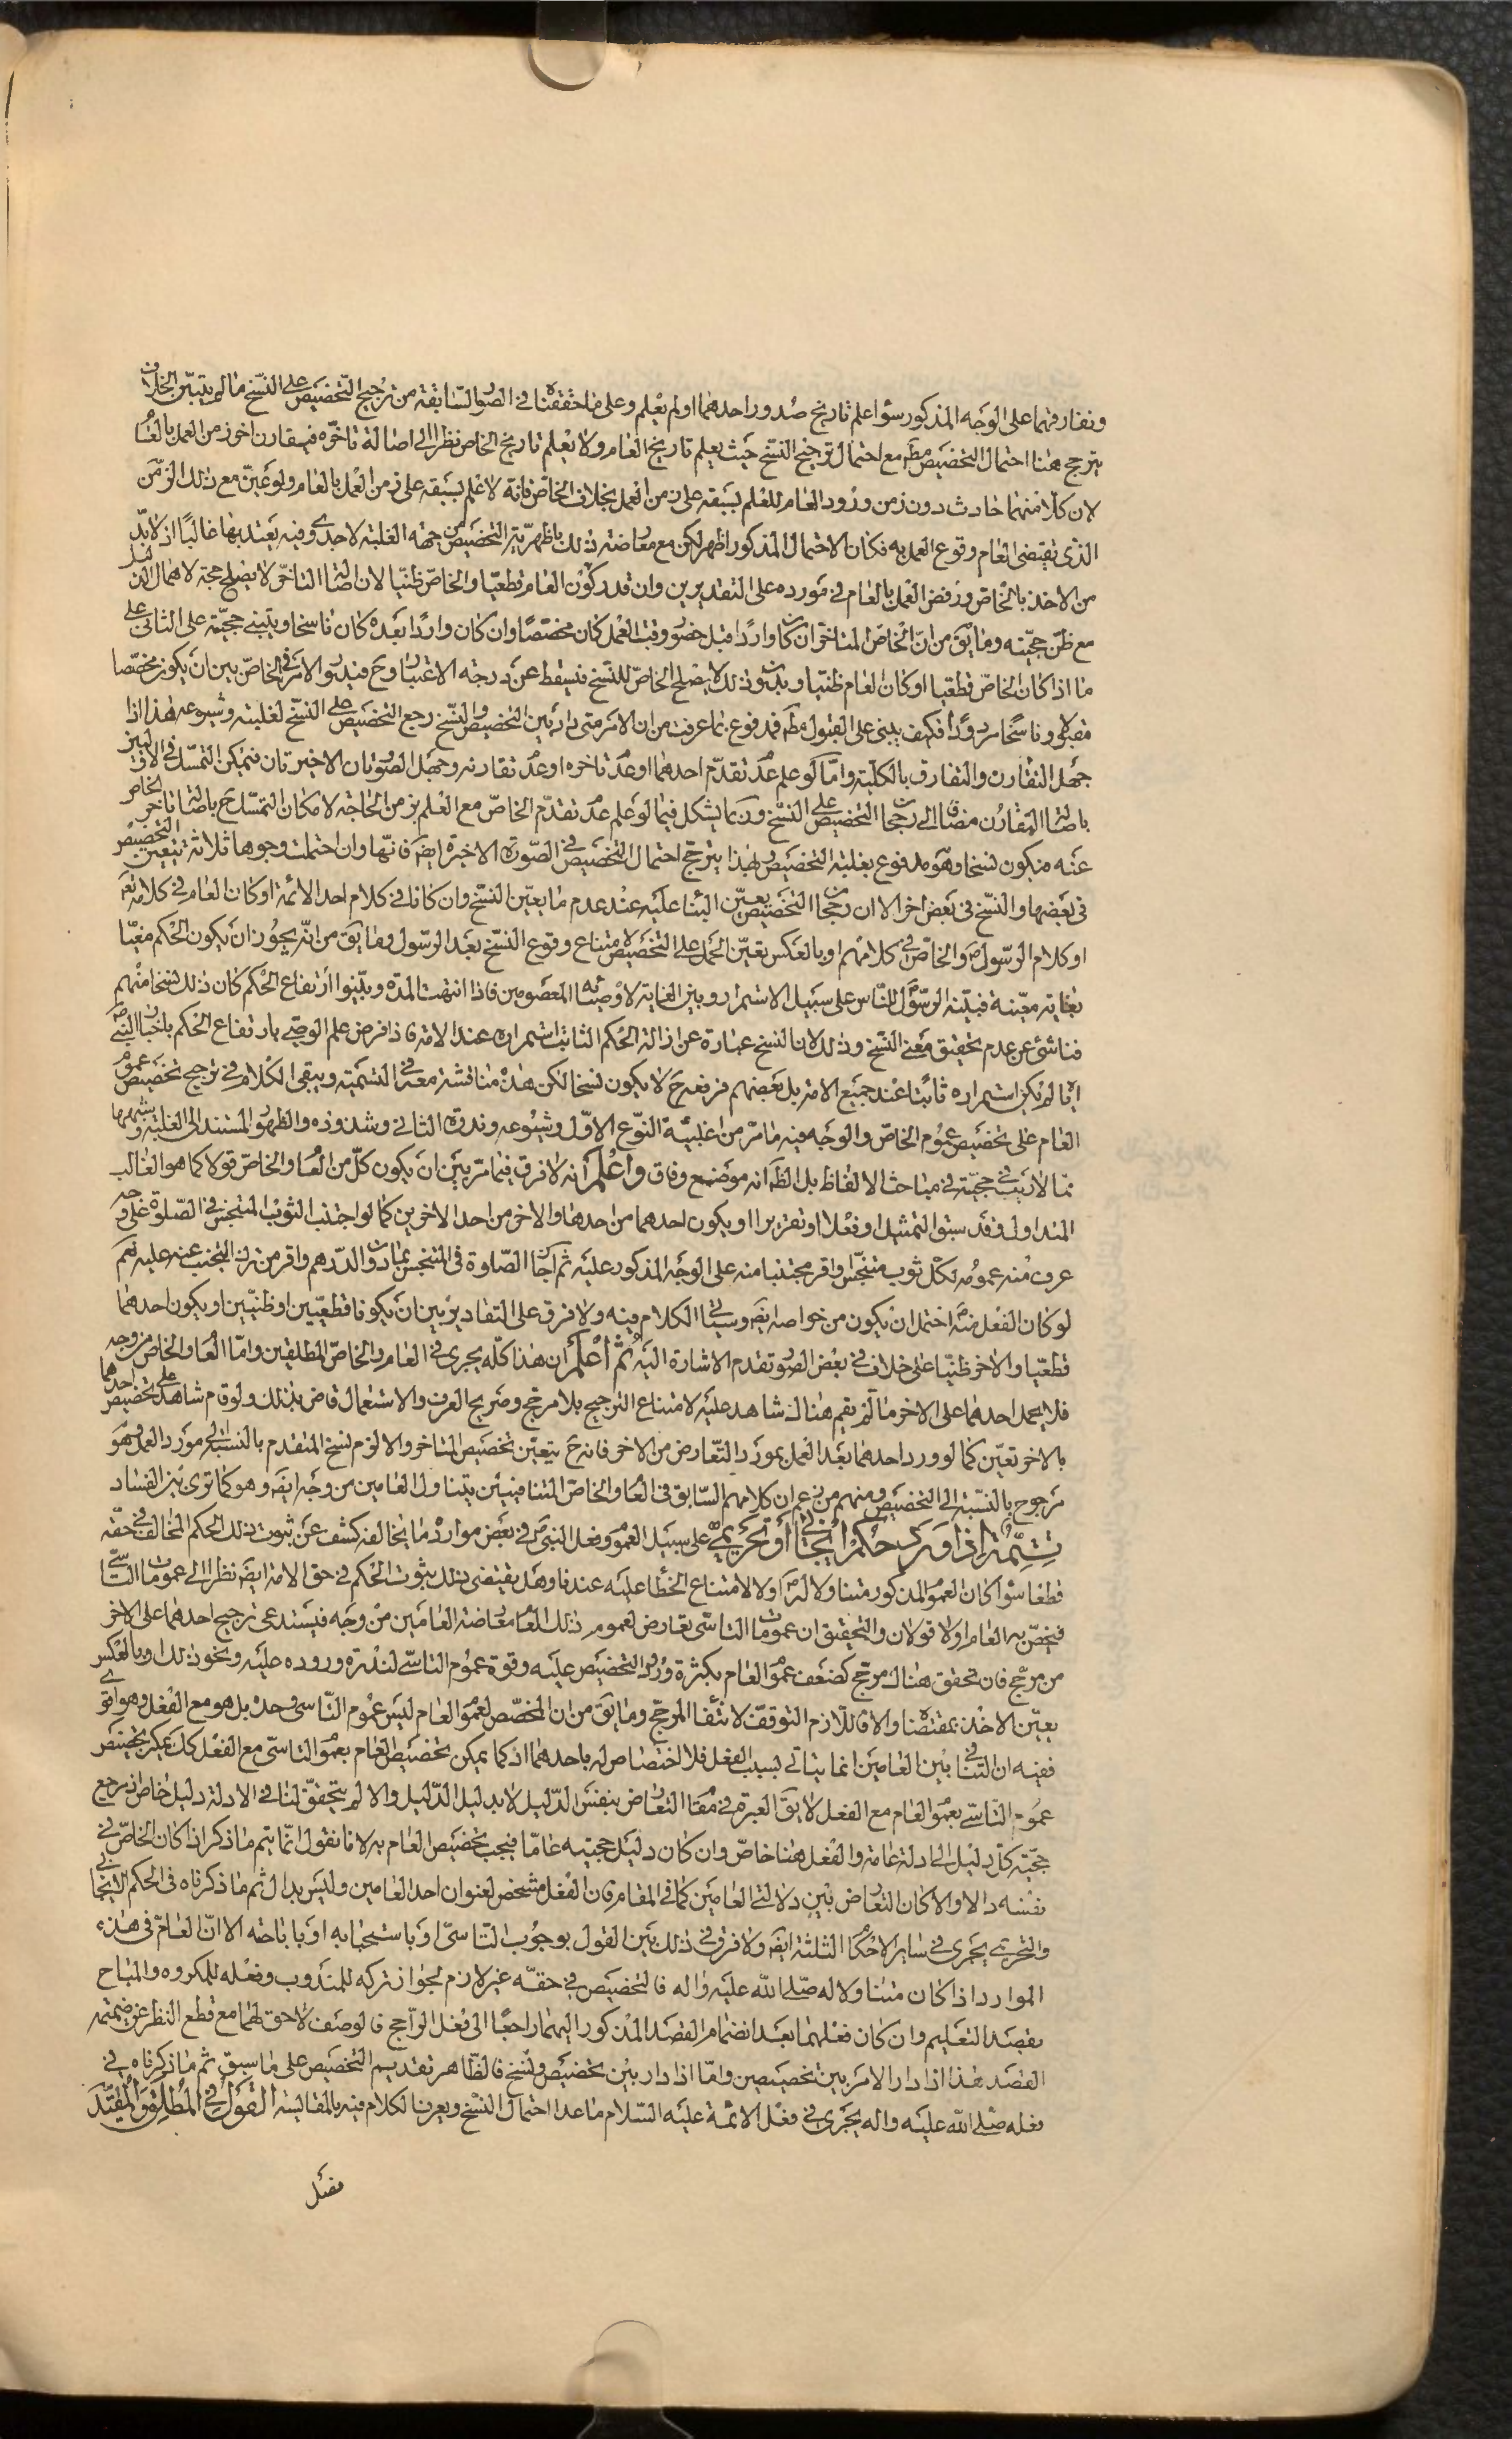 وتفارقهما على الوجه المذكور سواء علم تاريخ صدور احدهما او لم يعلم وعلى ما حققناه في الصور السّابقة من ترجيح التخصيص على النّسخ ما لم يتبيّن الخلاف
يترجح هنا احتمال التخصيص مطم مع احتمال ترجيح النسخ حيث يعلم تاريخ العام ولا يعلم تاريخ الخاص نظرا الى اصالة تاخّره فيقارن اخر زمن العمل بالعام
لان كلّا منهما حادث دون زمن ورود العام للعلم بسبقه على زمن العمل بخلاف الخاصّ فانه لا علم بسبقه على زمن العمل بالعام ولو عيّن مع ذلك الزمن
الذى يقتضى العام وقوع العمل به فكان الاحتمال المذكور اظهر لكن مع معارضته ذلك باظهريّة التخصيص من جهة الغلبة لا جدوى فيه يعتد بها غالبًا اذ لا بدّ
من الاخذ بالخاصّ ورفض العمل بالعام في مورده على التقديرين وان قدر كون العام قطعيّا والخاصّ ظنيّا لان اصالة التاخّر لا يصلح حجة لاهمال الدليل
مع ظنّ حجيّته وما يق من انّ الخاصّ المتاخر ان كان واردًا قبل حضور وقت العمل كان مخصّصًا وان كان واردًا بعده كان ناسخا ويبتنى حجيّته على الثانى على
ما اذا كان الخاصّ قطعيّا او كان العام ظنيّا وبدون ذلك لا يصلح الخاصّ للنّسخ فيسقط عن درجة الاعتبار وح فيدور الامر في الخاصّ بين ان يكون مخصّصا
مقبلا وناسخا مردودًا فكيف يبنى على القبول مطم فمدفوع بما عرفت من ان الامر متى دار بين التخصيص والنّسخ رجع التخصيص على النّسخ لغلبته وشيوعه هذا اذا
جهل التقارن والتفارق بالكليّة وامّا لو علم عدم تقدّم احدهما او عدم تاخره او عدم تقارنه وجهل الصّورتان الاخيرتان فيمكن التمسّك في الاوليين
باصالة التقارن مضافا الى رجحان التخصيص على النّسخ وربما يشكل فيما لو علم عدم تقدّم الخاصّ مع العلم بزمن الحاجة لامكان التمسّك ح باصالة تاخّر الخاص
عنه فيكون نسخا وهو مدفوع بغلبة التخصيص ولهذا يترجّح احتمال التخصيص في الصّورة الاخيرة ايضَ فانّها وان احتملت وجوها ثلاثة يتعين التخصيص
في بعضها والنّسخ في بعض اخر الا ان رجحان التخصيص يعيّن البناء عليه عند عدم ما يعيّن النسخ وان كانا في كلام احد الائمة او كان العام في كلامه تعم
او كلام الرّسول ص والخاصّ في كلامهم او بالعكس تعيّن الحمل على التخصيص لامتناع وقوع النّسخ بعد الرّسول وما يق من انّه يجوز ان يكون الحكم مغيّا
بغاية معيّنة فبيّنه الرسول للنّاس على سبيل الاستمرار وبيّن الغاية لاوصيائه المعصومين فاذا انتهت المدّة وبيّنوا ارتفاع الحكم كان ذلك نسخا منهم
فناشئ عن عدم تحقيق معنى النّسخ وذلك لان النسخ عبارة عن ازالة الحكم الثابت استمراره عند الامة فاذا فرض علم الوصي بارتفاع الحكم باخبار النّبي ص
ايّاه لم يكن استمراره ثابتا عند جميع الامة بل بعضهم فرفعه ح لا يكون نسخا لكن هذه مناقشة معه في التسمية ويبقى الكلام في ترجيح تخصيص عموم
العام على تخصيص عموم الخاصّ والوجه فيه ما مرّ من اغلبيّة النّوع الاوّل وشيوعه وندرة الثاني وشذوذه والظهور المستند الى الغلبة وشبهها
ممّا لا ريب في حجيّته في مباحث الالفاظ بل الظّ انه موضع وفاق واعلم انه لا فرق فيما مرّ بين ان يكون كلّ من العام والخاصّ قولا كما هو الغالب
المتداول وقد سبق التمثيل او فعلا او تقريرا او يكون احدهما من احدها والاخر من احد الاخرين كما لو اجتنب الثوب المتنجّس في الصّلوة على وجه
عرف منه عمومه لكلّ ثوب متنجّس او اقر مجتنبا منه على الوجه المذكور عليه ثم اجاز الصّلوة في المتنجّس بما دون الدّرهم او اقر من ترك التجنب عنه عليه نعم
لو كان الفعل منه احتمل ان يكون من خواصه ايضَ وسياتى الكلام فيه ولا فرق على التقادير بين ان يكونا قطعيّين او ظنّيين او يكون احدهما
قطعيّا والاخر ظنيّا على خلاف في بعض الصور تقدم الاشارة اليه ثم اعلم ان هذا كلّه يجرى في العام والخاصّ المطلقين وامّا العام والخاص من وجه
فلا يحمل احدهما على الاخر ما لم يقم هناك شاهد عليه لامتناع الترجيح بلا مرجّح وصريح العرف والاستعمال قاض بذلك ولو قام شاهد على تخصيص احدهما
بالاخر تعيّن كما لو ورد احدهما بعد العمل بمورد التّعارض من الاخر فانه ح يتعيّن تخصيص المتاخر والا لزم نسخ المتقدم بالنّسبة الى مورد العمل وهو
مرجوح بالنّسبة الى التخصيص ومنهم من زعم ان كلامهم السّابق في العام والخاصّ المتنافيين يتناول العامين من وجه ايضَ وهو كما ترى بيّن الفساد
تتمّة اذا ورد حكم ايجابي او تحريمي على سبيل العموم وفعل النبي ص في بعض موارده ما يخالفه كشف عن ثبوت ذلك الحكم المخالف في حقه
قطعا سواء كان العموم المذكور متناولا له ص او لا لامتناع الخطا عليه عندنا وهل يقتضى ذلك ثبوت الحكم في حق الامة ايضَ نظرا الى عمومات التاسّي
فيخصّ به العام او لا قولان والتحقيق ان عمومات التاسّى تعارض لعموم ذلك العام معارضة العامّين من وجه فيستدعى ترجيح احدهما على الاخر
من مرجّح فان تحقق هناك مرجّح كضعف عموم العام بكثرة ورود التخصيص عليه وقوة عموم التاسّي لندرة وروده عليه ونحو ذلك او بالعكس
يعيّن الاخذ بمقتضاه والا فاللازم التوقف لانتفاء المرجّح وما يق من ان المخصّص لعموم العام ليس عموم التّاسى وحده بل هو مع الفعل وهو اقوى
ففيه ان التنافي بين العامين انما يتاتي بسبب الفعل فلا اختصاص له باحدهما اذ كما يمكن تخصيص العام بعموم التاسّى مع الفعل كك يمكن تخصيص
عموم التّاسّي بعموم العام مع الفعل لا يق العبرة في مقام التعارض بنفس الدّليل لا بدليل الدّليل والا لم يتحقّق لنا في الادلة دليل خاص لرجع
حجيّة كلّ دليل الى ادلة عامة والفعل هنا خاصّ وان كان دليل حجيته عامّا فيجب تخصيص العام به لانا نقول انّما يتم ما ذكر اذا كان الخاصّ في
نفسه دالا والا كان التعارض بين دلالتى العامّين كما في المقام فان الفعل مشخص لعنوان احد العامين وليس بدال ثم ما ذكرناه في الحكم الايجابي
والتحريمي يجرى في ساير الاحكام الثلثة ايضَ ولا فرق في ذلك بين القول بوجوب التّاسىّ او باستحبابه او باباحته الا انّ العامّ في هذه
الموارد اذا كان متناولا له صلى الله عليه واله فالتخصيص في حقه غير لازم لجواز تركه للمندوب وفعله للمكروه والمباح
بقصد التعليم وان كان فعلهما بعد انضمام القصد المذكور اليهما راجعًا الى فعل الرّاجح فالوصف لاحق لهما مع قطع النظر عن ضميمة
القصد هذا اذا دار الامر بين تخصيصين وامّا اذا دار بين تخصيص ونسخ فالظّاهر تقديم التخصيص على ما سبق ثم ما ذكرناه في
فعله صلى الله عليه واله يجرى في فعل الائمة عليه السّلام ما عدا احتمال النّسخ ويعرف الكلام فيه بالمقايسة القول في المطلق والمقيّد
فصل